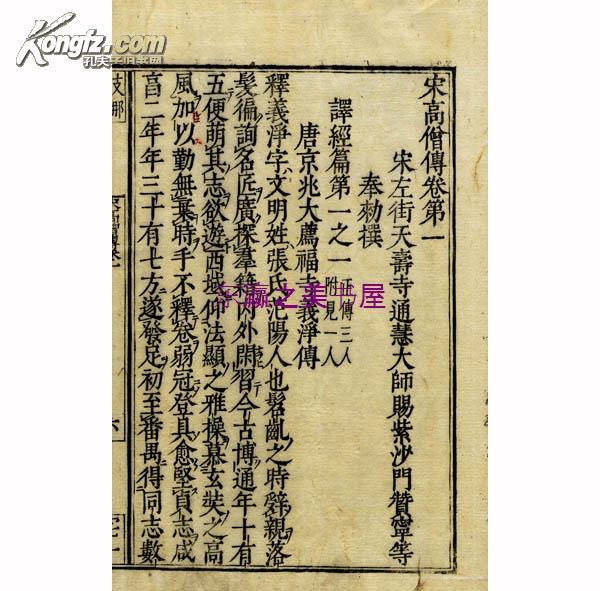 宋高僧傳卷第一
宋左街天壽寺通慧大師賜紫沙門贊寧等
奉勑撰
譯經篇第一之一 正傳三人 附見一人
唐京兆大薦福寺義淨傳
釋義淨字文明姓張氏范陽人也髫齓之時辭親落
髮徧詢名匠廣探羣籍內外閑習今古博通年十有
五便萌其志欲遊西域仰法顯之雅操慕玄奘之高
風加以勤無棄時手不釋卷弱冠登具愈堅貞志咸
亨二年年三十有七方遂發足初至番禺得同志數
Kongfz.com
孔夫子旧书网
东瀛之美书屋